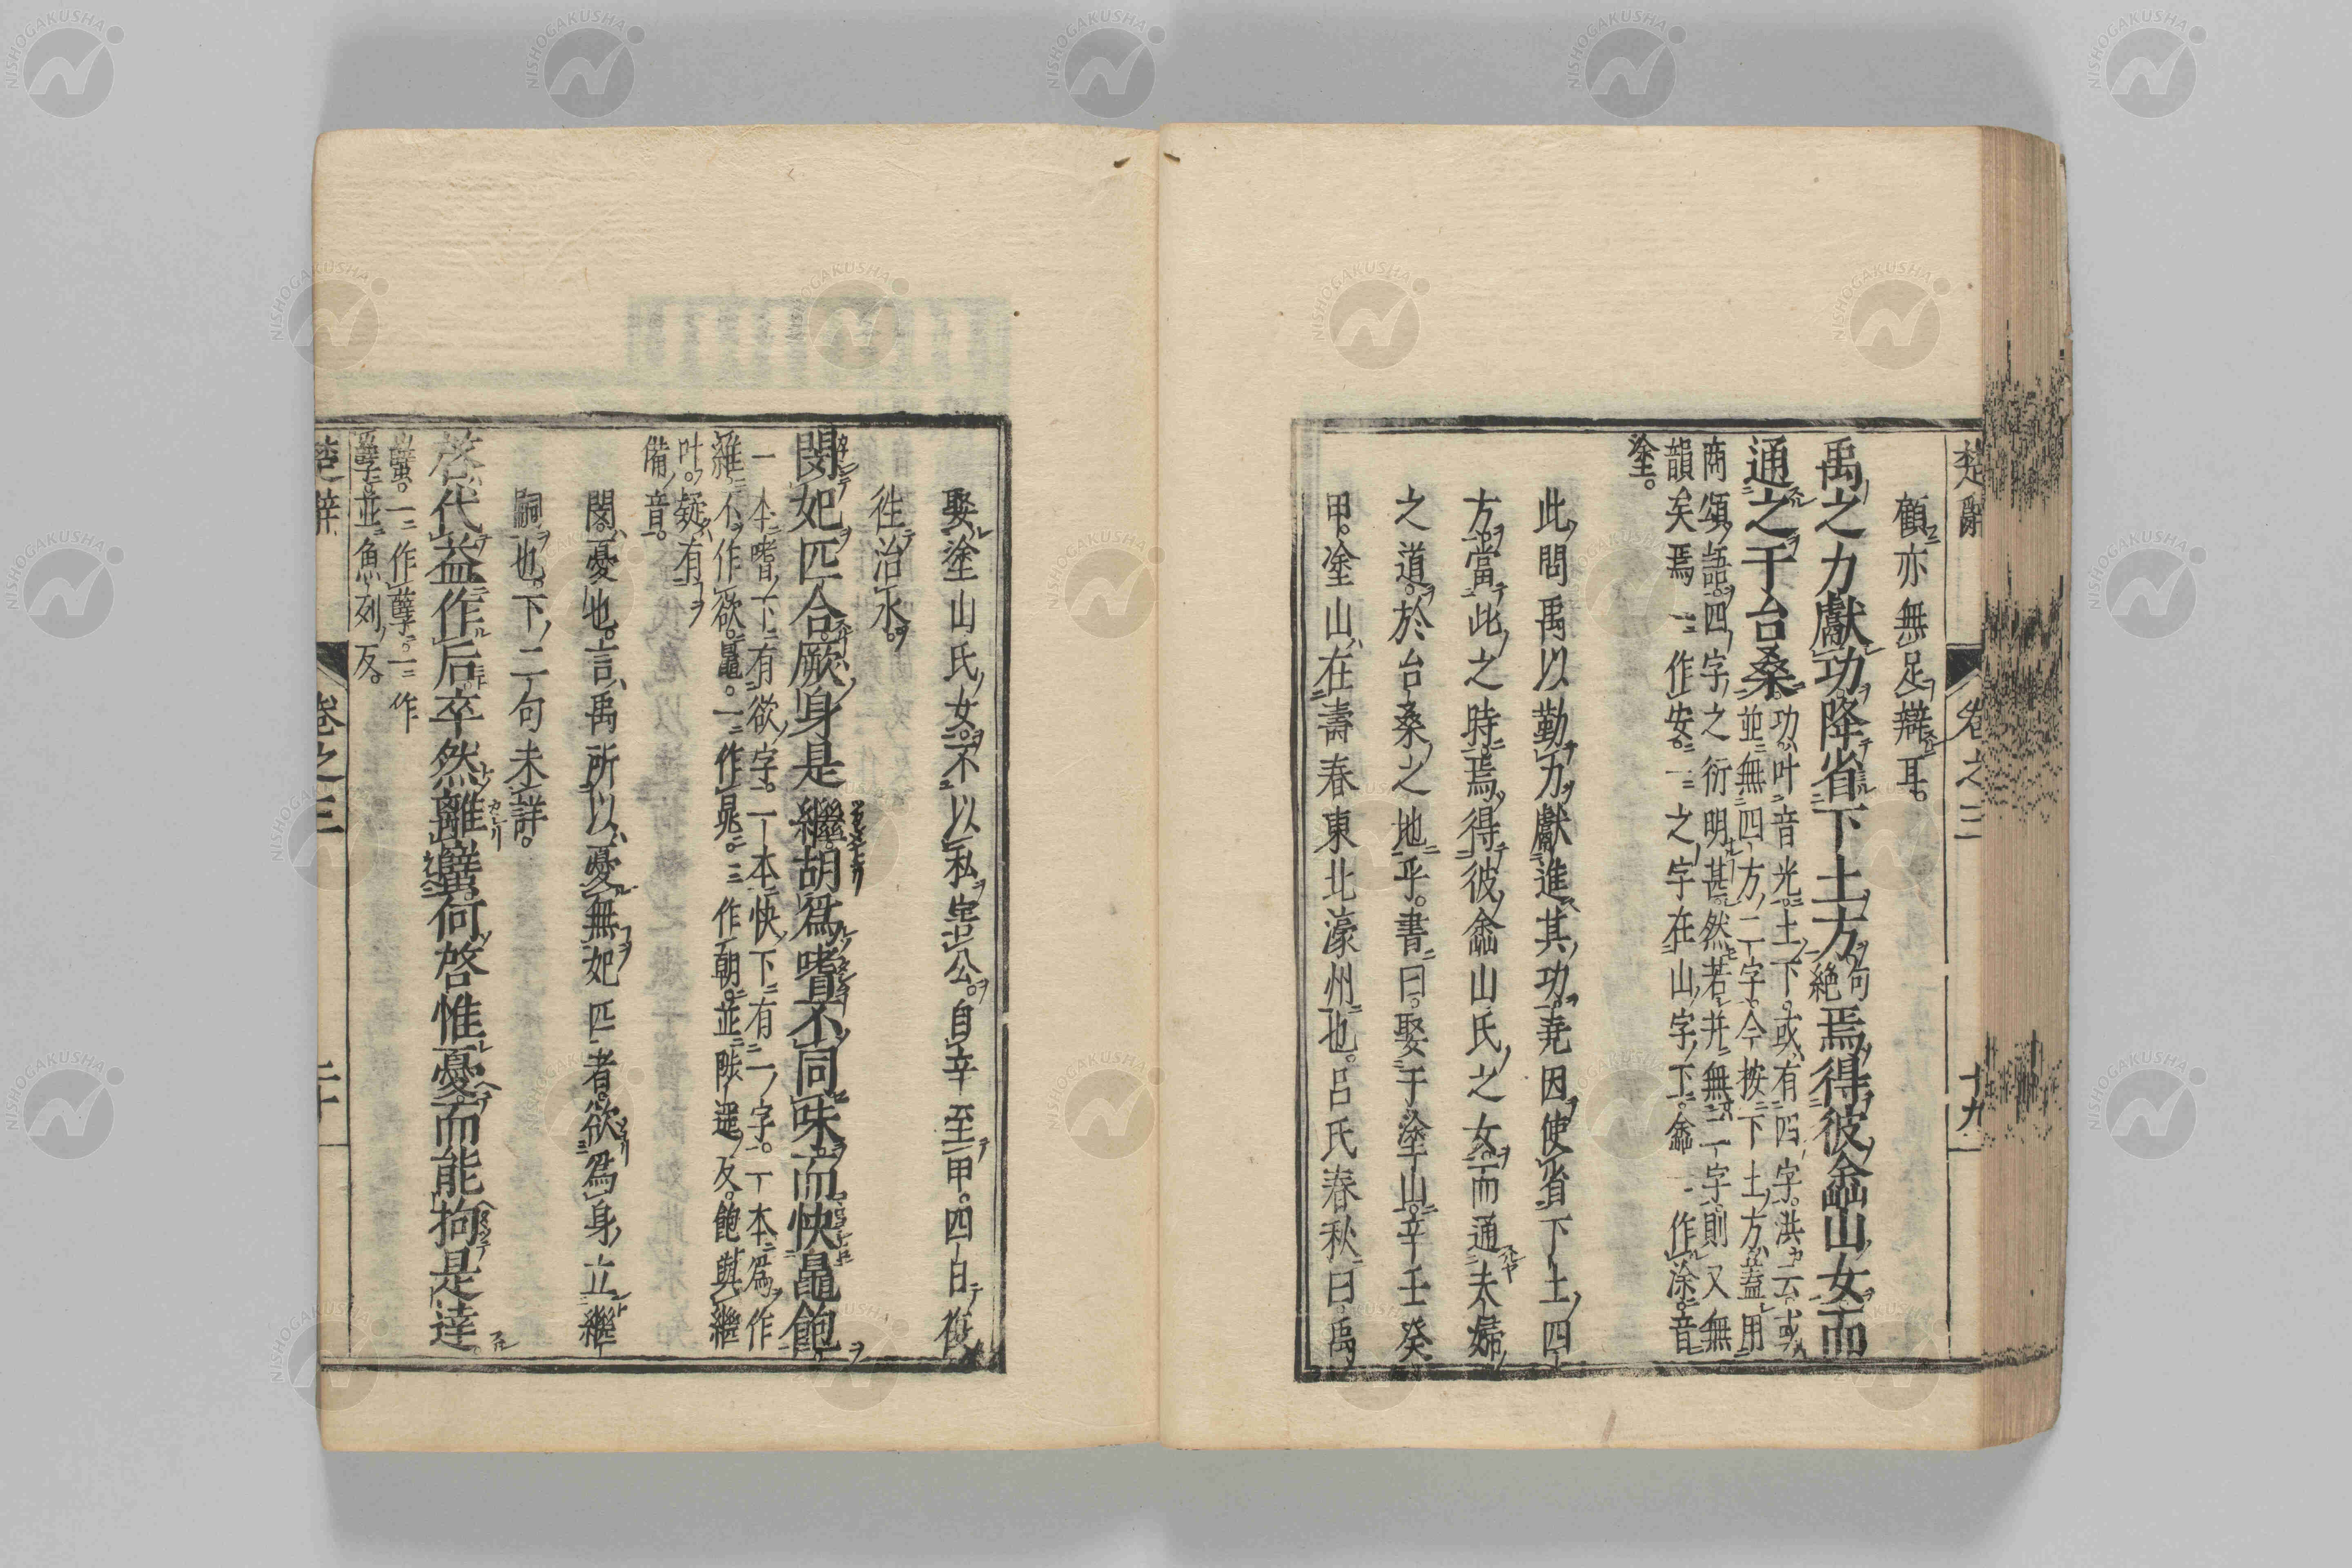 楚辭 卷之三 十九
顧亦無足辯耳。
禹之力獻功降省下土方絶句焉得彼嵞山女而
通之于台桑功叶音光土下或有四字洪云或
並無四方二字今按下土方蓋用
商頌語四字之衍明甚然若并無二字則又無
韻矣焉一作安一之字在山字下嵞一作涂音
塗。
此問禹以勤力獻進其功堯因使省下土四
方當此之時焉得彼嵞山氏之女而通夫婦
之道於台桑之地乎。書曰娶于塗山辛壬癸
甲。塗山在壽春東北濠州也。呂氏春秋曰禹
娶塗山氏女不以私害公。自辛至甲。四日復
徃治水。
閔妃匹合厥身是繼胡爲嗜不同味而快鼂飽
一本嗜下有欲字。一本快下有一字。一本爲作
維不作欲。鼂。一作晁。三作朝並陟遥反。飽與繼
叶。疑有
備音。
閔憂也。言禹所以憂無妃匹者欲爲身立繼
嗣也。下二句未詳。
啓代益作后卒然離蠥何啓惟憂而能拘是達
蠥一作孽一作
㜸並魚列反。
楚辭 卷之三 二十
NISHOGAKUSHA